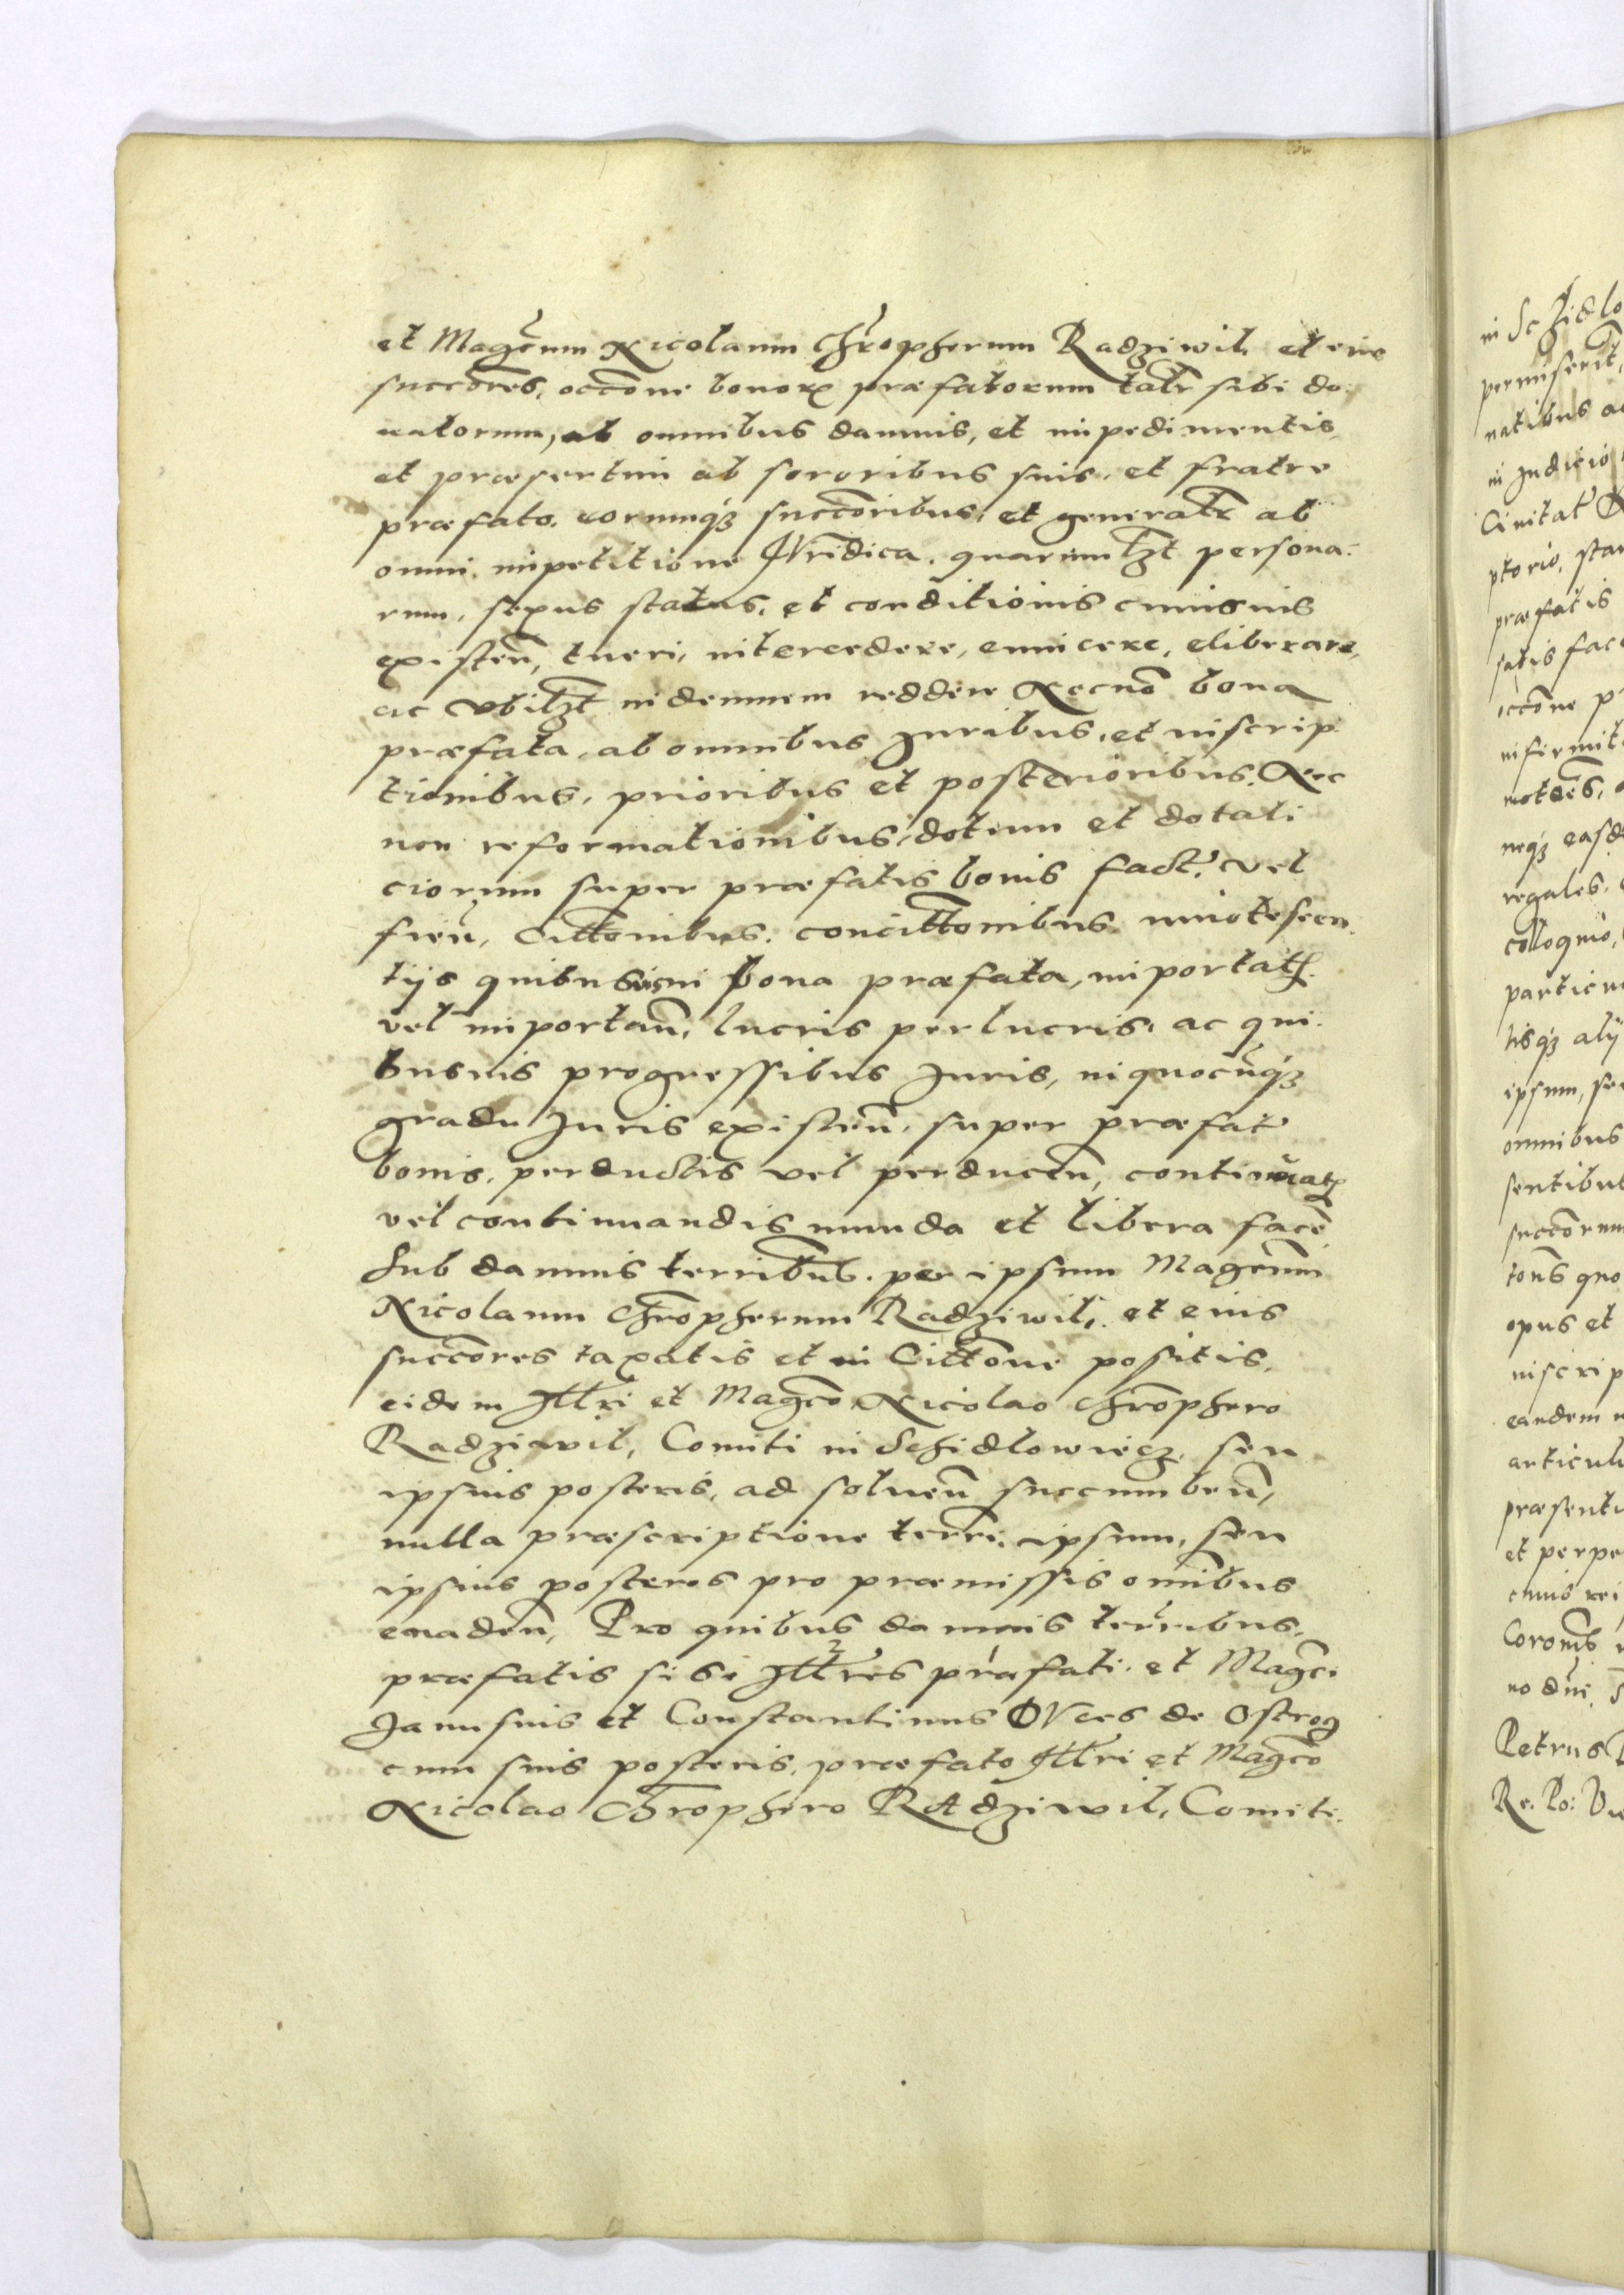 et Magcum Nicolaum Chropherum Radziwil, et eius
succores, occone bonorum præfatorum talr sibi do-
natorum, ab omnibus damnis, et impedimentis,
et præsertim ab sororibus suis, et fratre
præfato, eorumq3 succoribus, et generalr ab
omni impetitione Iuridica, quarumlzt persona-
rum, sexus status, et conditionis cuiusuis
existen, tueri, intercedere, euincere, eliberare,
ac vbilzt indemnem reddere Necno bona
præfata, ab omnibus Iuribus, et inscrip-
tionibus, prioribus et posterioribus, Nec
non reformationibus, dotium et dotali
ciorum super præfatis bonis fact, vel
fien, Cittonibus, concittonibus, innotescen
tijs quibusuis in bona præfata, importat
vel importan, lucris perlucris, ac qui-
busuis progressibus Iuris, in quocunq3
gradu Iuris existen, super præfat
bonis, perductis vel perducen, continuat
vel continuandis munda et libera face
Sub damnis terribus, per ipsum Magcum
Nicolaum Chropherum Radziwil, et eius
succores taxatis et in Cittone positis,
eidem Illri et Magco Nicolao Chrophero
Radziwil, Comiti in Schidlowiecz, seu
ipsius posteris, ad soluen succumben,
nulla præscriptione terri, ipsum, seu
ipsius posteros pro præmissis omibus
euaden, Pro quibus damnis terribus,
præfatis si si Illres præfati et Magci
Janusius et Constantinus DVces de Ostrog
cum suis posteris, præfato Illri et Magco
Nicolao Chrophero RAdziwil, Comiti
in Schidlo
permiserit,
natibus
in Iudicio
Ciuitat
ptorio, sta
præfatis
satis fac
occone
infirmit
neq3 easd
regales,
colloquio,
particu
tisq3 alij
ipsum, se
omnibus
sentibus
succorum
quo
opus et
inscrip
eandem
articul
præsenti
et perpe
cuius rei
Coronis
no dni,
Petrus
Re. Po: Vi